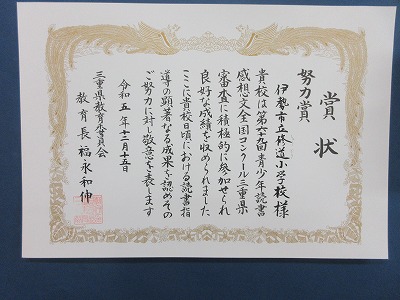 賞状
努力賞
伊勢市立修道小学校様
貴校は第六十九回青少年読書
感想文全国コンクール三重県
審査に積極的に参加せられ
良好な成績を収められました
ここに貴校日頃における読書指
導の顕著なる成果を認めその
ご努力に対し敬意を表します
令和五年十二月十五日
三重県教育委員会
教育長 福永和伸